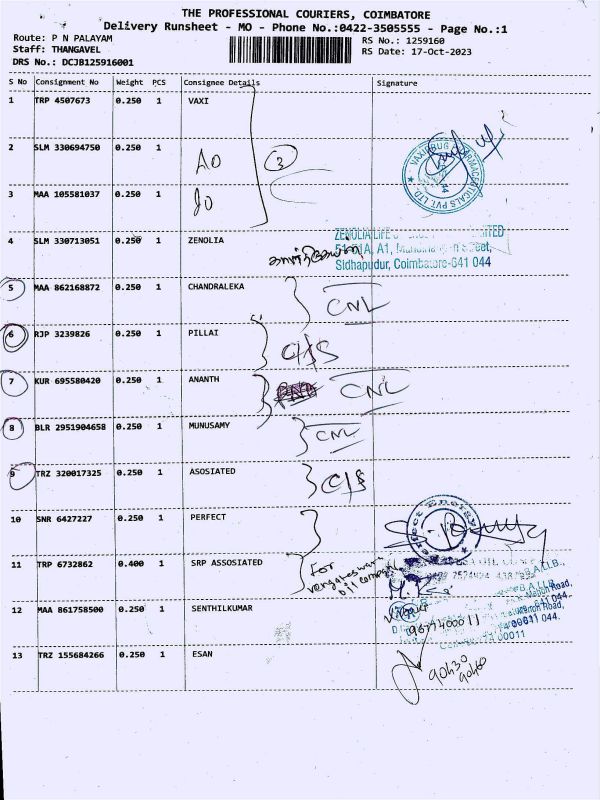 THE PROFESSIONAL COURIERS, COIMBATORE
Delivery Runsheet - MO - Phone No.:0422-3505555 - Page No.:1
Route: P N PALAYAM
RS No.: 1259160
Staff: THANGAVEL
RS Date: 17-Oct-2023
DRS No.: DCJB125916001
S No Consignment No Weight PCS Consignee Details Signature
1 TRP 4507673 0.250 1 VAXI
2 SLM 330694750 0.250 1
AO 3
3 MAA 105581037 0.250 1
JO
4 SLM 330713051 0.250 1 ZENOLIA
ZENOLIA LIFE LIMITED
A1, Street,
Sidhapudur, Coimbatore-641 044
5 MAA 862168872 0.250 1 CHANDRALEKA
CNL
6 RJP 3239826 0.250 1 PILLAI
C/S
7 KUR 695580420 0.250 1 ANANTH
CNL
8 BLR 2951904658 0.250 1 MUNUSAMY
CNL
9 TRZ 320017325 0.250 1 ASOSIATED
C/S
10 SNR 6427227 0.250 1 PERFECT
Perfect Energy
11 TRP 6732862 0.400 1 SRP ASSOSIATED
For
oil company
B.A.LLB.,
12 MAA 861758500 0.250 1 SENTHILKUMAR
Road,
641 044.
13 TRZ 155684266 0.250 1 ESAN
90h30
90h60